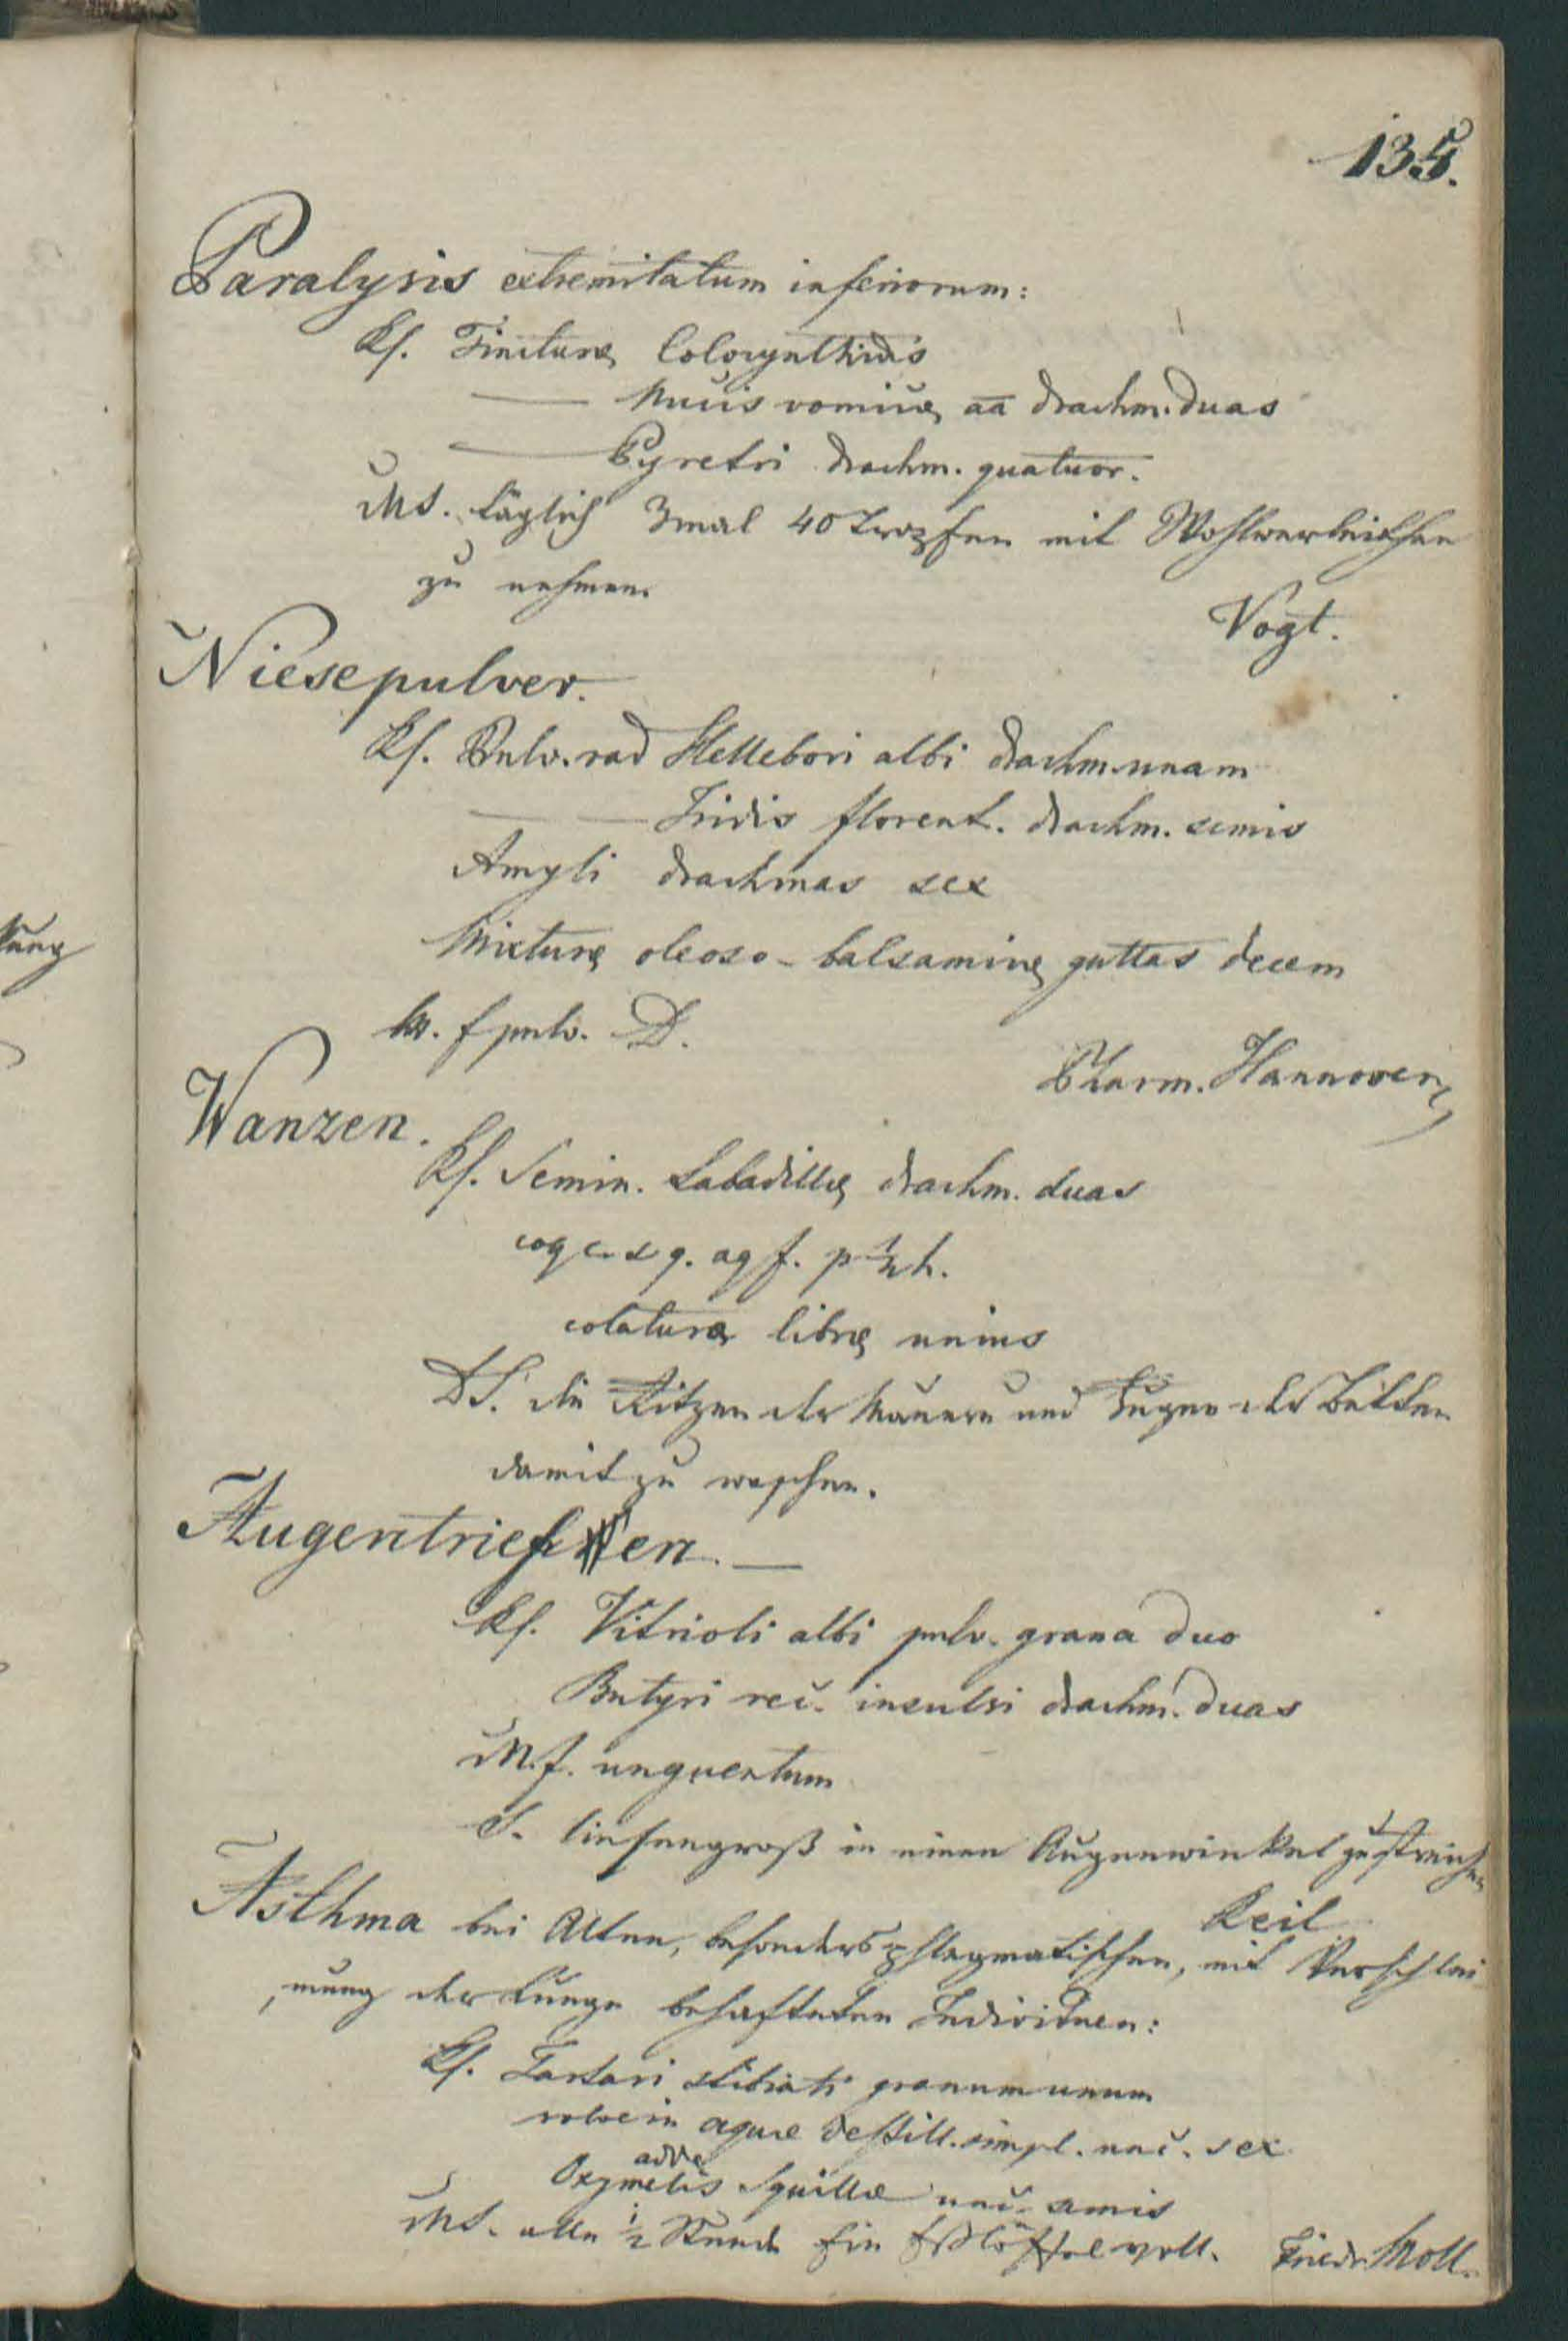 135.
Paralysis extremitatum inferiorum:
Rf. Tincturæ Colocynthidis
—— Nucis vomicæ aa drachm. duas
—— Pyretri drachm. quatuor.
MS. täglich 3mal 40 Tropfen mit Wohlverleithee
zu nehmen.
Vogt.
Niesepulver.
Rf. Pulv. rad Hellebori albi drachm. unam
—— —— Iridis florent. drachm. semis
Amyli drachmas sex
Mixturæ oleoso-balsamicæ guttas decem
M. f pulv. D.
Pharm. Hannover.
Wanzen.
Rf. Semin. Sabadillæ drachm. duas
coq c. s q. aq f. p ½ h.
colaturæ libræ unius
DS. die Ritzen der Mauern und Fugen der Betten
damit zu waschen.
Augentriefen. —
Rf. Vitrioli albi pulv. grana duo
Butyri rec. insulsi drachm. duas
M. f. unguentum
S. linsengroß in einen Augenwinkel zu streichen
Reil
Asthma bei Alten, besonders phlegmatischen, mit Verschlei
mung der Lunge behafteten Individuen:
Rf. Tartari stibiati granum unum
solve in aquæ destill. simpl. unc. sex
adde
Oxymelis Squillæ unc. semis
MS. alle ½ Stunde ein Eßlöffel voll. Friedr. Moll.